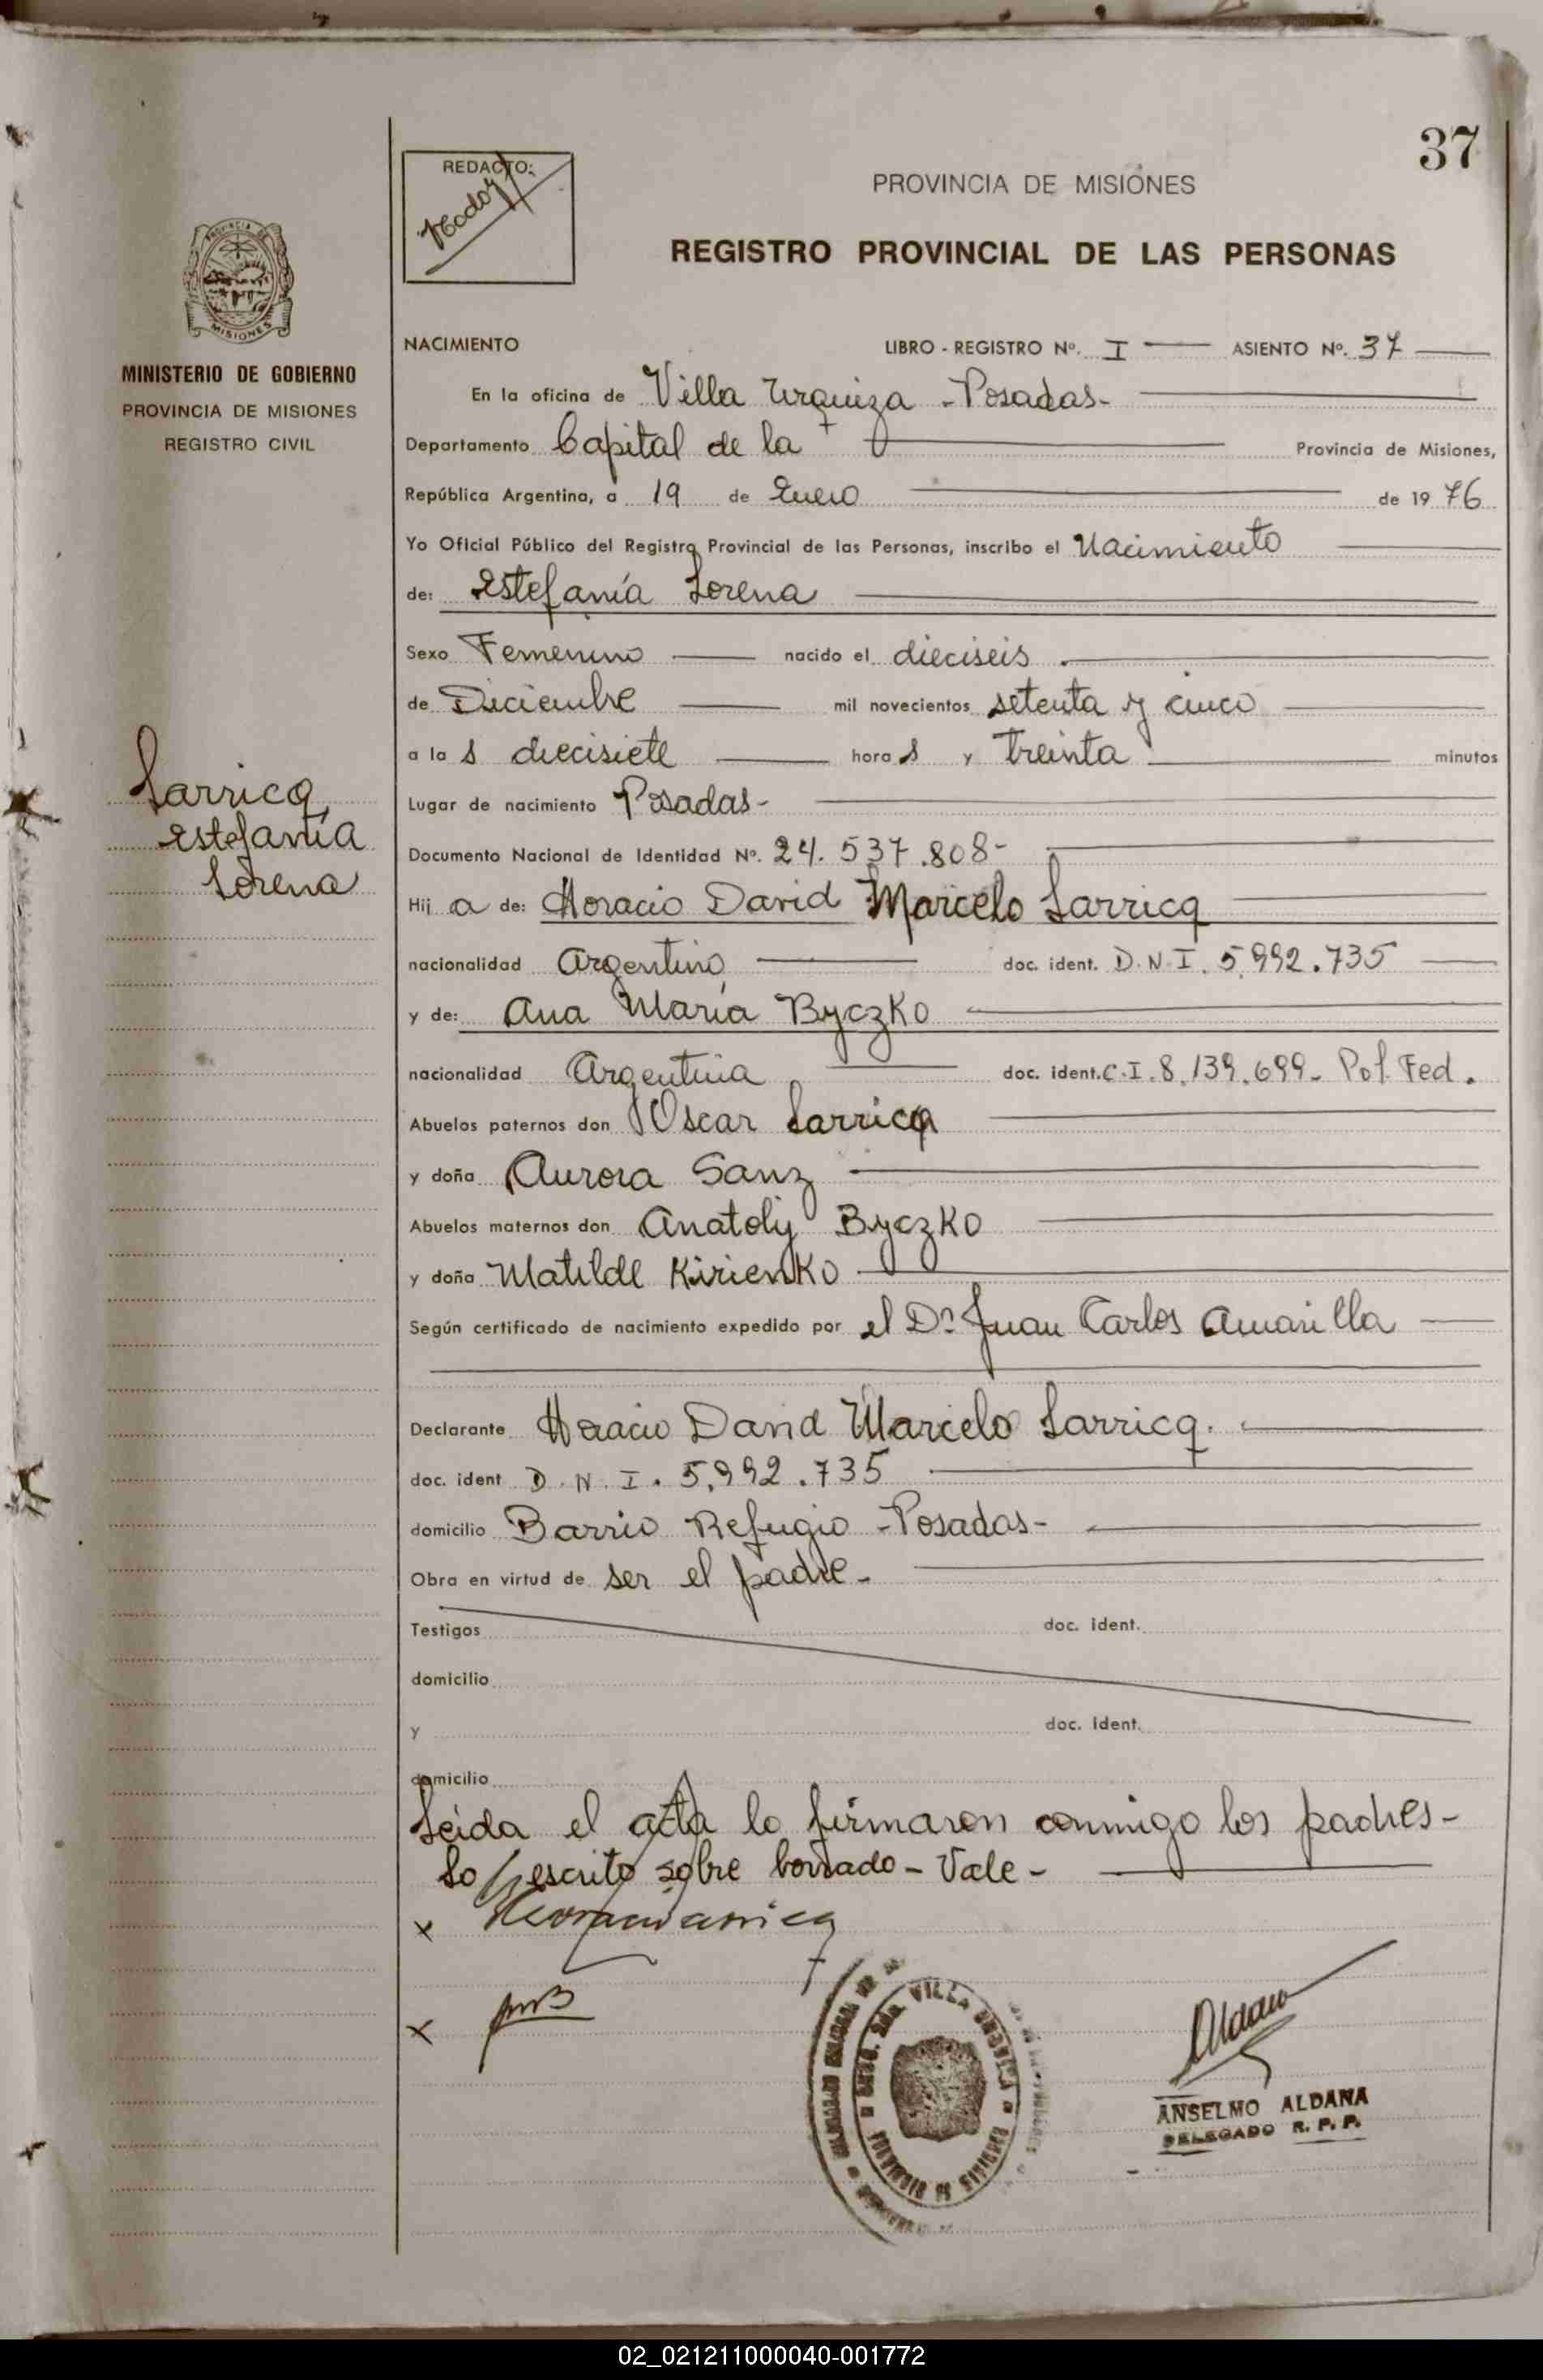 37
REDACTO:
PROVINCIA DE MISIONES
REGISTRO PROVINCIAL DE LAS PERSONAS
PROVINCIA DE
MISIONES
MINISTERIO DE GOBIERNO
PROVINCIA DE MISIONES
REGISTRO CIVIL
Larricq
Estefanía
Lorena
NACIMIENTO LIBRO - REGISTRO Nº. I ASIENTO Nº. 37
En la oficina de Villa Urquiza - Posadas-
Departamento Capital de la Provincia de Misiones,
República Argentina, a 19 de Enero de 19 76
Yo Oficial Público del Registro Provincial de las Personas, inscribo el Nacimiento
de: Estefanía Lorena
Sexo Femenino nacido el dieciseis
de Diciembre mil novecientos setenta y cinco
a la s diecisiete hora s y treinta minutos
Lugar de nacimiento Posadas-
Documento Nacional de Identidad Nº. 24.537.808-
Hij a de: Horacio David Marcelo Larricq
nacionalidad Argentino doc. ident. D.N.I. 5.992.735
y de: Ana María Byczko
nacionalidad Argentina doc. ident. C.I. 8.139.699- Pol. Fed.
Abuelos paternos don Oscar Larricq
y doña Aurora Sanz
Abuelos maternos don Anatoly Byczko
y doña Matilde Kirienko
Según certificado de nacimiento expedido por el Dr. Juan Carlos Amarilla
Declarante Horacio David Marcelo Larricq.
doc. ident D.N.I. 5.992.735
domicilio Barrio Refugio - Posadas-
Obra en virtud de ser el padre-
Testigos doc. ident.
domicilio
y doc. Ident.
domicilio
Leida el acta lo firmaron conmigo los padres-
Lo escrito sobre borrado - Vale-
x
x
VILLA URQUIZA
PROVINCIA DE MISIONES
ANSELMO ALDANA
DELEGADO R. P. P.
02_021211000040-001772